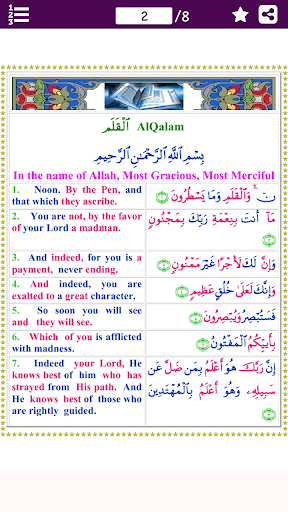 1
2
3
2 /8
الْقَلَم AlQalam
بِسْمِ اللَّهِ الرَّحْمَٰنِ الرَّحِيمِ
In the name of Allah, Most Gracious, Most Merciful
1. Noon. By the Pen, and
that which they ascribe.
نٓ ۚ وَالْقَلَمِ وَمَا يَسْطُرُونَ
2. You are not, by the favor
of your Lord a madman.
مَآ أَنتَ بِنِعْمَةِ رَبِّكَ بِمَجْنُونٍ
3. And indeed, for you is a
payment, never ending.
وَإِنَّ لَكَ لَأَجْرًا غَيْرَ مَمْنُونٍ
4. And indeed, you are
exalted to a great character.
وَإِنَّكَ لَعَلَىٰ خُلُقٍ عَظِيمٍ
5. So soon you will see
and they will see.
فَسَتُبْصِرُ وَيُبْصِرُونَ
6. Which of you is afflicted
with madness.
بِأَييِّكُمُ الْمَفْتُونُ
7. Indeed your Lord, He
knows best of him who has
strayed from His path. And
He knows best of those who
are rightly guided.
إِنَّ رَبَّكَ هُوَ أَعْلَمُ بِمَن ضَلَّ عَن
سَبِيلِهِ وَهُوَ أَعْلَمُ بِالْمُهْتَدِينَ